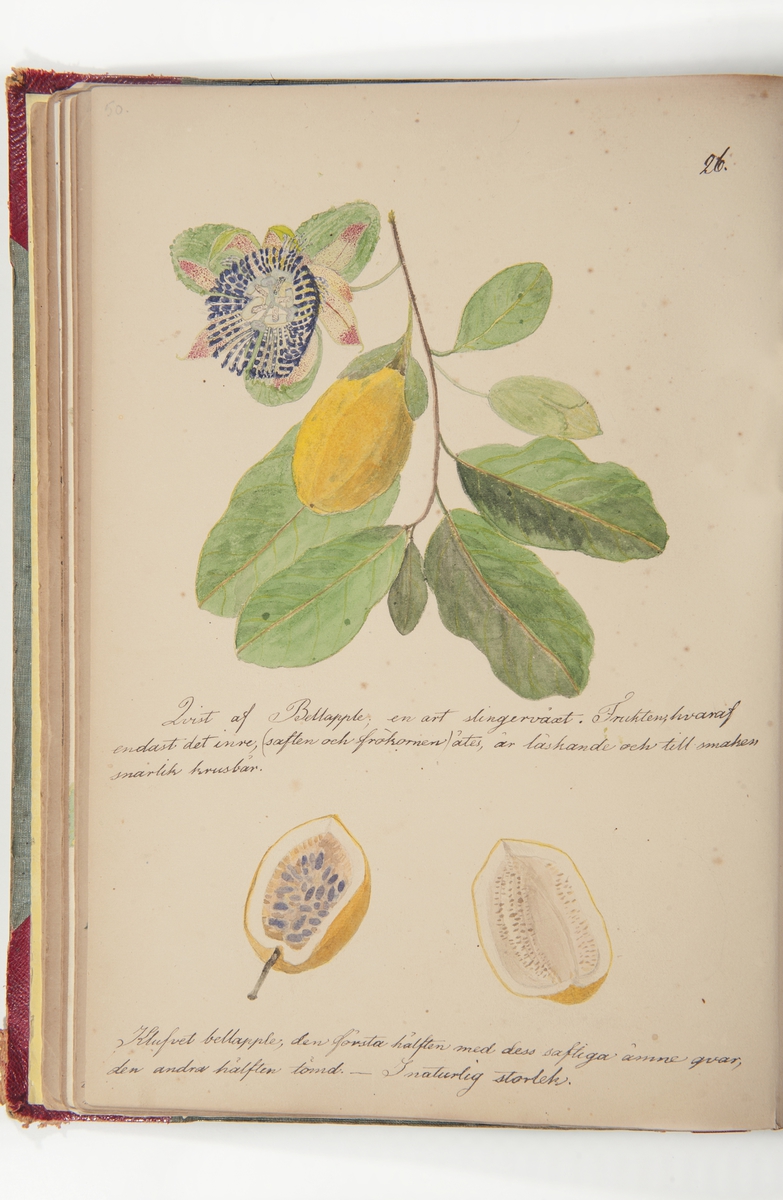 50.
26.
Qvist af Bellapple; en art slingerväxt. Frukten, hvaraf
endast det inre, (saften och frökornen) ätes, är läskande och till smaken
snarlik krusbär.
Klufvet bellapple, den första hälften med dess saftiga ämne qvar,
den andra hälften tömd. — I naturlig storlek.